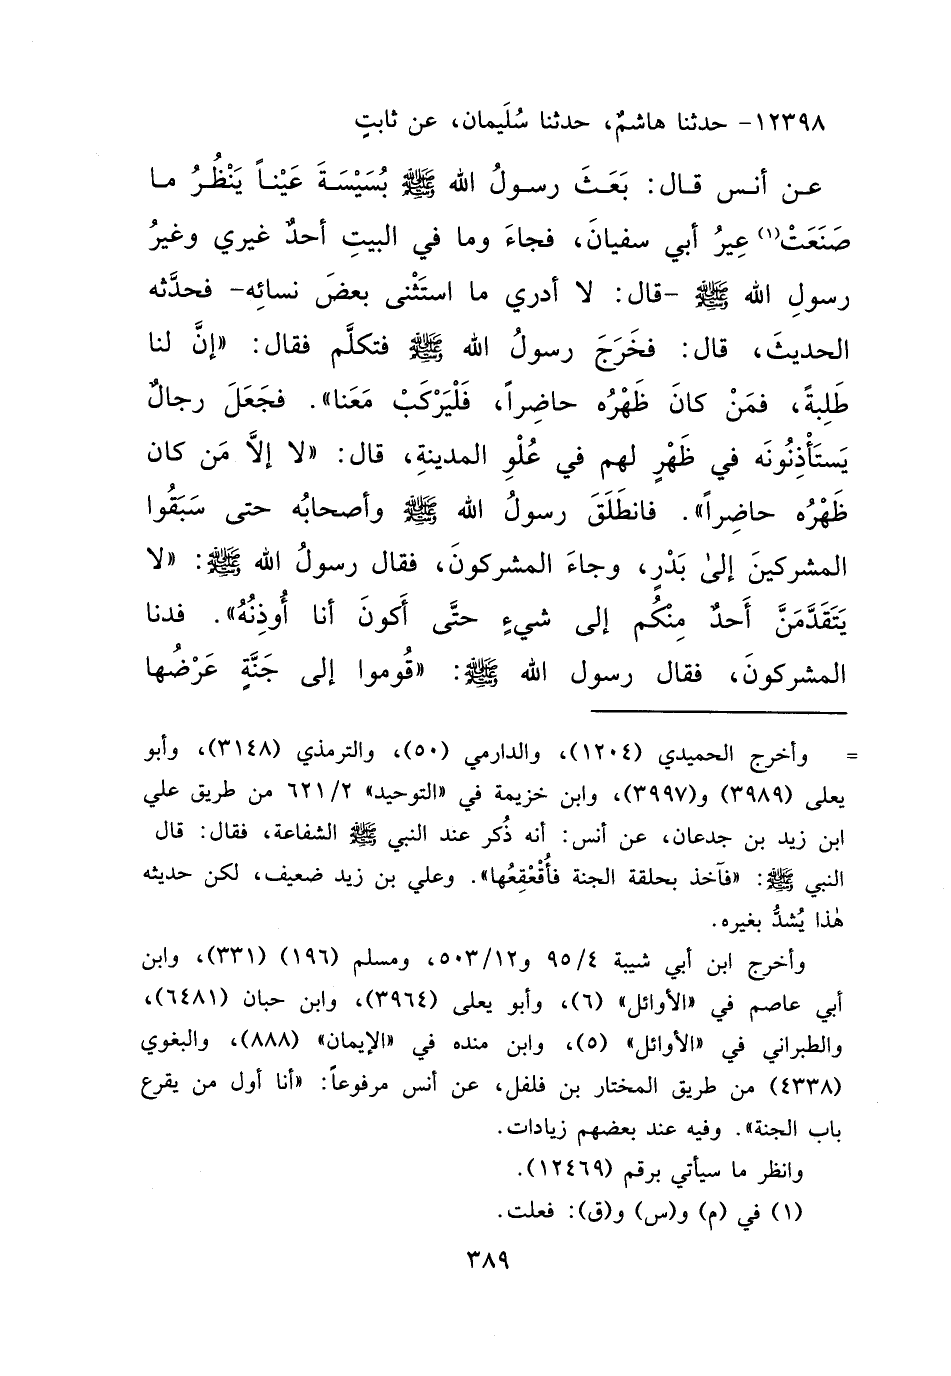 ١٢٣٩٨- حدثنا هاشمٌ، حدثنا سُلَيمان، عن ثابتٍ
عـن أنـس قـال: بَعَـثَ رسـولُ الله ﷺ بُسَيْسَـةَ عَيْنـاً يَنْظُـرُ مـا
صَنَعَتْ(١) عِيرُ أبي سفيانَ، فجاءَ وما في البيتِ أحدٌ غيري وغيرُ
رسولِ الله ﷺ -قال: لا أدري ما استَثْنى بعضَ نسائِه- فحدَّثه
الحديثَ، قال: فخَرَجَ رسولُ الله ﷺ فتكلَّم فقال: «إنَّ لنا
طَلِبةً، فمَنْ كانَ ظَهْرُه حاضِراً، فَلْيَركَبْ مَعَنا». فجَعَلَ رجالٌ
يَستَأْذِنُونَه في ظَهْرٍ لهم في عُلْوِ المدينةِ، قال: «لا إلاَّ مَن كان
ظَهْرُه حاضِراً». فانطَلَقَ رسولُ الله ﷺ وأصحابُه حتى سَبَقُوا
المشركينَ إلىٰ بَدْرٍ، وجاءَ المشركونَ، فقال رسولُ الله ﷺ: «لا
يَتَقَدَّمَنَّ أَحدٌ مِنْكُم إلى شيءٍ حتَّى أَكونَ أنا أُوذِنُهُ». فدنا
المشركونَ، فقال رسول الله ﷺ: «قُوموا إلى جَنَّةٍ عَرْضُها
= وأخرج الحميدي (١٢٠٤)، والدارمي (٥٠)، والترمذي (٣١٤٨)، وأبو
يعلى (٣٩٨٩) و(٣٩٩٧)، وابن خزيمة في «التوحيد» ٦٢١/٢ من طريق علي
ابن زيد بن جدعان، عن أنس: أنه ذُكر عند النبي ﷺ الشفاعة، فقال: قال
النبي ﷺ: «فآخذ بحلقة الجنة فأُقْعْقِعُها». وعلي بن زيد ضعيف، لكن حديثه
هٰذا يُشدُّ بغيره.
وأخرج ابن أبي شيبة ٩٥/٤ و٥٠٣/١٢، ومسلم (١٩٦) (٣٣١)، وابن
أبي عاصم في «الأوائل» (٦)، وأبو يعلى (٣٩٦٤)، وابن حبان (٦٤٨١)،
والطبراني في «الأوائل» (٥)، وابن منده في «الإيمان» (٨٨٨)، والبغوي
(٤٣٣٨) من طريق المختار بن فلفل، عن أنس مرفوعاً: «أنا أول من يقرع
باب الجنة». وفيه عند بعضهم زيادات.
وانظر ما سيأتي برقم (١٢٤٦٩).
(١) في (م) و(س) و(ق): فعلت.
٣٨٩